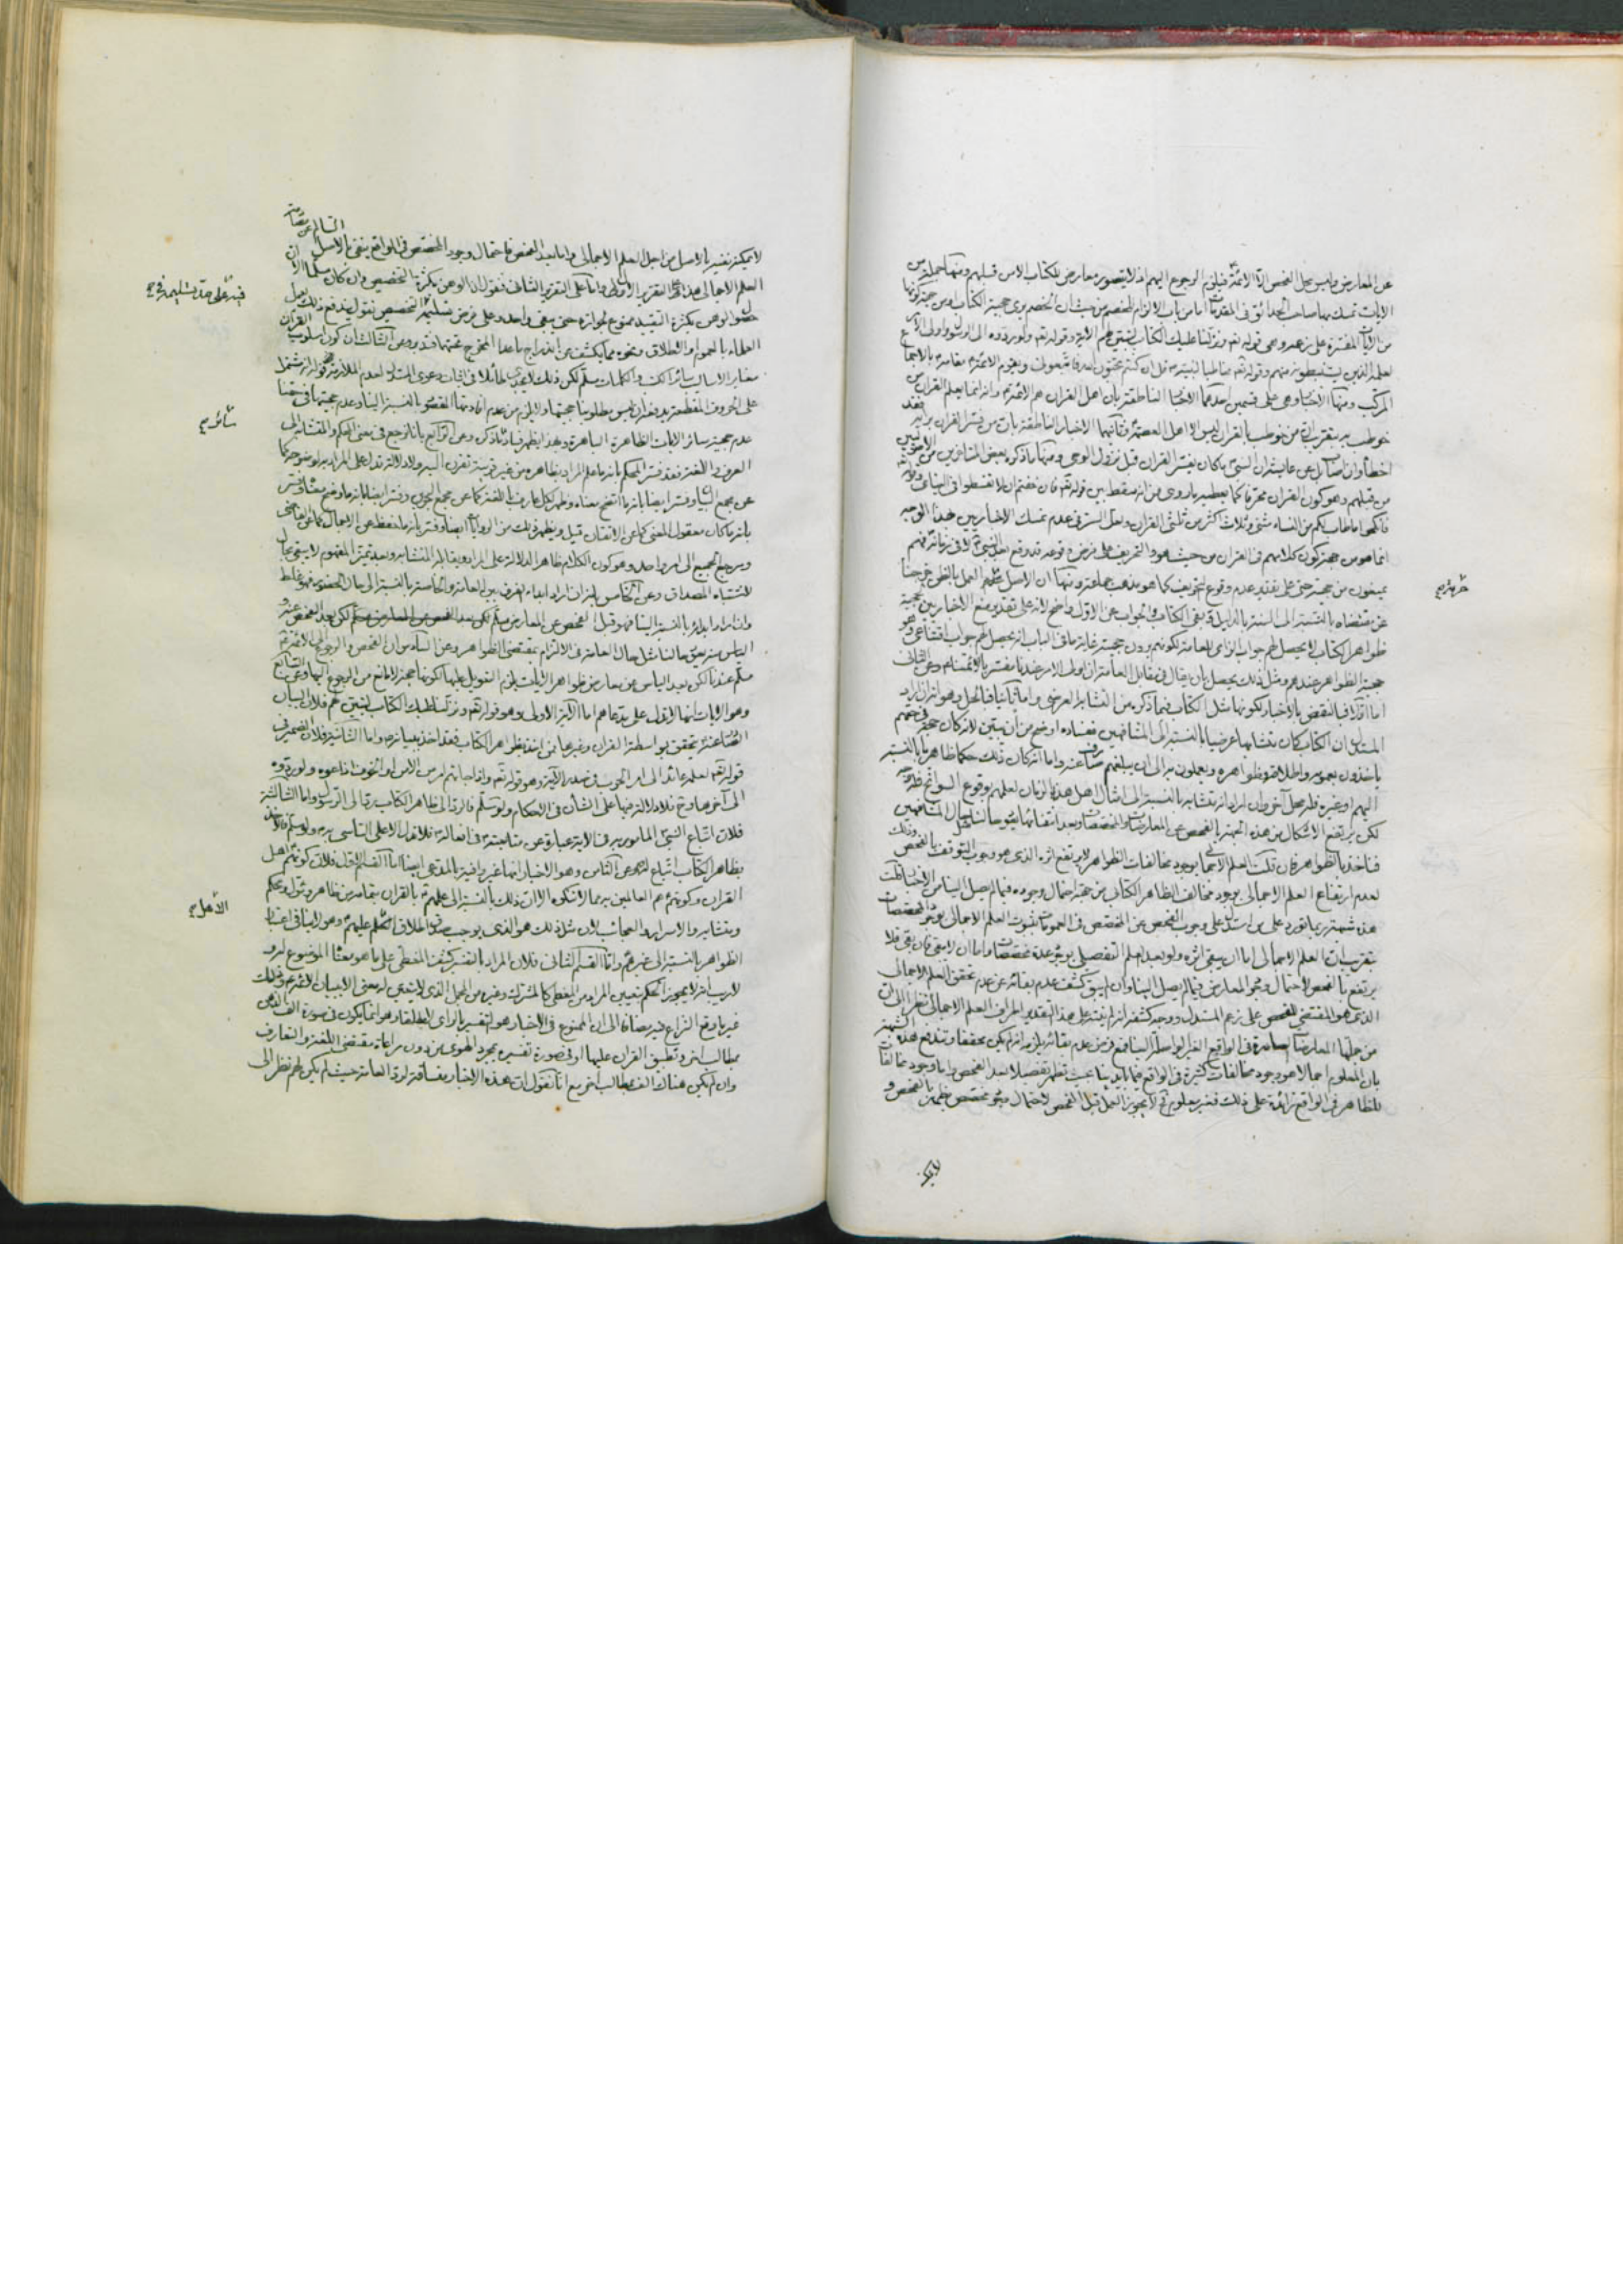 عن المعارض وليس محل الفحص الا الائمة فيلزم الرجوع اليهم اذ لا يتصور معارض للكتاب الا من قبلهم ومنها جملة من
الايات تمسك بها صاحب الحدائق في المقدمات اما من باب الالزام للخصم من حيث ان الخصم يرى حجية الكتاب او من جهة كونها
من الايات المفسرة على زعمه وهي قوله تعالى ونزلنا عليك الكتاب لتبين لهم الاية وقوله تعالى ولو ردوه الى الرسول واولى الامر
لعلمه الذين يستنبطونه منهم وقوله تعالى مخاطبا لنبيه قل ان كنتم تحبون الله فاتبعوني
المركب ومنها الاخبار وهي على قسمين احدهما الاخبار الناطقة بان اهل القران هم الائمة وانه انما يعلم القران من
خوطب به بتقريب ان من خوطب بالقران ليس الا اهل العصمة وثانيهما الاخبار الناطقة بان من فسر القران برايه فقد
اخطأ وان اصاب بل عن عايشة ان النبي ما كان يفسر القران قبل نزول الوحي ومنها ما ذكره بعض المتاخرين من الاصوليين
من قبلهم وهو كون القران محرفا كما يعطيه ما روي من انه سقط بين قوله تعالى فان خفتم ان لا تقسطوا في اليتامى وقوله
فانكحوا ما طاب لكم من النساء مثنى وثلاث اكثر من ثلثي القران ولعل السر في عدم تمسك الاخباريين بهذا الوجه
انما هو من جهة كون كلامهم في القران من حيث هو والتحريف على فرض وقوعه قد وقع بعد النبي لا في زمانه فهم
يمنعون من حجيته حتى على تقدير عدم وقوع التحريف كما هو مذهب جماعة ومنها ان الاصل عدم العمل بالظن خرجنا
عن مقتضاه بالنسبة الى السنة بالدليل وبقي الكتاب والجواب عن الاول واضح لانه على تقدير منع الاخباريين حجية
ظواهر الكتاب لا يحصل لهم جواب الزامي للعامة لكونهم يرون حجيته غاية ما في الباب انه يحصل لهم جواب اقناعي وهو
حجية الظواهر عندهم ومثل ذلك يحصل بان يقال في مقابل العامة ان اولى الامر عندنا مفسر بالائمة وعن الثاني
اما اولا فبالنقض بالاخبار لكونها مثل الكتاب فيما ذكره من التشابه العرضي واما ثانيا فبالحل وهو انه ان اراد
المستدل ان الكتاب كان متشابها عرضيا بالنسبة الى المشافهين ففساده اوضح من ان يبين لانه كان حجة في حقهم
ياخذون بعمومه واطلاقه وظواهره ويعملون به الى ان يبلغهم صارف عنه واما انه كان ذلك حكما ظاهريا بالنسبة
اليهم او غيره فله محل آخر وان اراد انه متشابه بالنسبة الى امثال اهل هذا الزمان لعلمهم بوقوع السوانح فله وجه
لكن يرتفع الاشكال من هذه الجهة بالفحص عن المعارضات والمخصصات وبعد انتفائها يصير حالنا كحال المشافهين
فناخذ بالظواهر فان قلت العلم الاجمالي بوجود مخالفات الظواهر لا يرتفع اثره الذي هو وجوب التوقف بالفحص وذلك
لعدم ارتفاع العلم الاجمالي بوجود مخالف الظاهر الكتاب من جهة احتمال وجوده فيما لم يصل الينا من الاخبار قلت
هذه شبهة ربما تورد على من استدل على وجوب الفحص عن المخصص في العمومات بثبوت العلم الاجمالي بوجود المخصصات
بتقريب ان العلم الاجمالي اما ان يبقى اثره ولو بعد العلم التفصيلي بوجود عدة مخصصات واما ان لا يبقى فان بقي فلا
يرتفع بالفحص لاحتمال وجود المعارض فيما لم يصل الينا وان لم يبق كشف عدم بقائه عن عدم تحقق العلم الاجمالي
الذي هو المقتضي للفحص على زعم المستدل ووجه كشفه انه لم يفد على هذا التقدير اطراف العلم الاجمالي نظرا الى ان
من جملتها المعارضات الصادرة في الواقع الغير الواصلة الينا فمع فرض عدم بقائه يلزم انه لم يكن محققا وتندفع هذه الشبهة
بان المعلوم اجمالا هو وجود مخالفات كثيرة في الواقع فيما بايدينا بحيث تظهر تفصيلا بعد الفحص واما وجود مخالفات
للظاهر في الواقع زائدة على ذلك فغير معلوم فح لا يجوز العمل قبل الفحص لاحتمال وجود مخصص يظهر بالفحص و
حرمة
لا يمكن
لا يمكن نفيه بالاصل من اجل العلم الاجمالي واما بعد الفحص فاحتمال وجود المخصص في الواقع ينفى بالاصل السالم عن معارضة
العلم الاجمالي هذا على التقرير الاول واما على التقرير الثاني فنقول ان الوهن بكثرة التخصيص وان كان مسلما الا ان
حصول الوهن بكثرة التقييد ممنوع لجوازه حتى يبقى واحد وعلى فرض تسليم التخصيص نقول يندفع ذلك بعمل
العلماء بالعموم او الاطلاق ونحوه مما يكشف عن اندراج ما عدا المخرج تحتهما فتدبر وعن الثالث ان كون اسلوب القران
مغايرا لاساليب سائر الكتب والكلمات مسلم لكن ذلك لا يجدي طائلا في اثبات دعوى المستدل لعدم الملازمة
على الحروف المقطعة يدفعه ان ليس مطلوبنا حجيتها ولا يلزم من عدم افادتها المقصود بالنسبة الينا وعدم حجيتها في حقنا
عدم حجية سائر الايات الظاهرة الباهرة وبهذا يظهر فساد ما ذكر وعن الرابع بانا نرجع في معنى المحكم والمتشابه الى
العرف واللغة وقد فسر المحكم بانه ما علم المراد بظاهره من غير قرينة تقترن اليه ولا دلالة تدل على المراد به لوضوحه كما
عن مجمع البيان وفسر ايضا بانه ما اتضح معناه وظهر لكل عارف باللغة كما عن مجمع البحرين وفسر ايضا بانه ما وضح معناه وفسر
بانه ما كان معقول المعنى كما عن الاتقان قيل ويظهر ذلك من الروايات ايضا وفسر بانه ما حفظ من الاجمال كما عن
ومرجع الجميع الى امر واحد وهو كون الكلام ظاهر الدلالة على المراد ويقابله المتشابه وبعد تميز المفهوم لا يبقى مجال
لاشتباه المصداق وعن الخامس بانه ان اراد ابداء الفرق بين العامة والخاصة بالنسبة الى حال الحضور فهو غلط
وان اراد ابدائه بالنسبة الينا فهو قبل الفحص عن المعارض مسلم لكن بعد الفحص عنه و
الياس منه يبقى حالنا مثل حال العامة في الالتزام بمقتضى الظواهر وعن السادس ان الفحص والرجوع الى الائمة
مسلم عندنا لكن بعد الياس عن معارض ظواهر الايات يلزم التعويل عليها لكونها حجة لا مانع من الرجوع اليها وعن السابع
وهو الايات انها لا تدل على مدعاهم اما الاية الاولى وهو قوله تعالى ونزلنا عليك الكتاب لتبين لهم فلان البيان
المستفاد منه يتحقق بواسطة القران وغيره فمن اخذ بظواهر الكتاب فقد اخذ ببيانه واما الثانية فلان الضمير في
قوله تعالى لعلمه عائد الى امر الحرب في صدر الاية وهو قوله تعالى واذا جاءهم امر من الامن او الخوف اذاعوا به ولو ردوه
الى آخرها وح فلا دلالة فيها على الشان في الاحكام ولو سلم فالرد الى ظاهر الكتاب رد الى الرسول واما الثالثة
فلان اتباع النبي المامور به في الاية عبارة عن متابعته في افعاله فلا تدل الا على التاسي به ولو سلم فالاخذ
بظاهر الكتاب اتباع له وعن الثامن وهو الاخبار انها غير وافية بالمدعى ايضا اما القسم الاول فلان كونهم اهل
القران وكونهم هم العالمين به مما لا ننكره الا ان ذلك بالنسبة الى علمهم بالقران بتمامه من ظاهره ومؤوله ومحكمه
ومتشابهه والاسرار والعجائب لان مثل ذلك هو الذي يوجب صدق اطلاق العلم عليهم وهو لا ينافي اعتبار
الظواهر بالنسبة الى غيرهم واما القسم الثاني فلان المراد بالتفسير كشف المغطى على ما هو معناه الموضوع له ولا
لا ريب انه لا يجوز الحكم بتعيين المراد من المغطى كالمشترك وغيره من المجمل الذي لا يتعين له معنى الا ببيان الشرع وذلك
غير ما وقع النزاع فيه مضافا الى ان الممنوع في الاخبار هو التفسير بالراي لا مطلقا وهو انما يكون في صورة
بمطالب اخر وتطبيق القران عليها او في صورة تفسيره بمجرد الهوى من دون مراعاة مقتضى اللغة والتعارف
وان لم يكن هناك الف بمطالب اخر مع انا نقول ان هذه الاخبار مساقة لرد العامة حيث لم يكن لهم نظر الى
سائر
الاهل